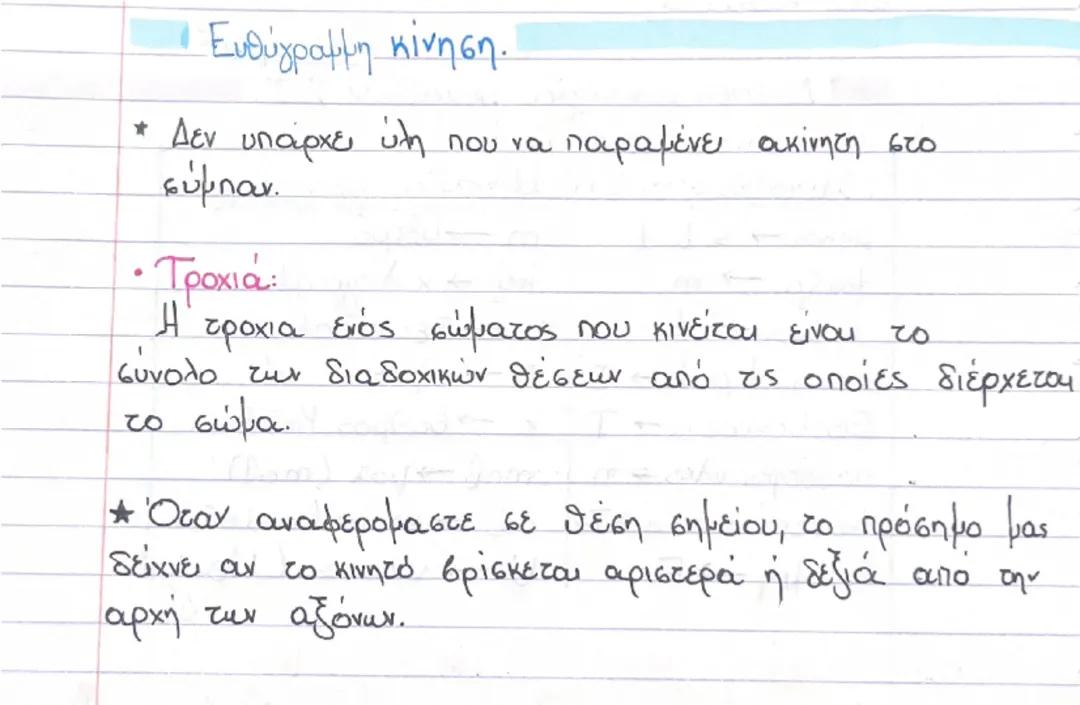 Ευθύγραμμη κίνηση.
* Δεν υπάρχει ύλη που να παραμένει ακίνητη στο
σύμπαν.
• Τροχιά:
Η τροχιά ενός σώματος που κινείται είναι το
σύνολο των διαδοχικών θέσεων από τις οποίες διέρχεται
το σώμα.
★ Όταν αναφερόμαστε σε θέση σημείου, το πρόσημο μας
δείχνει αν το κινητό βρίσκεται αριστερά ή δεξιά από την
αρχή των αξόνων.